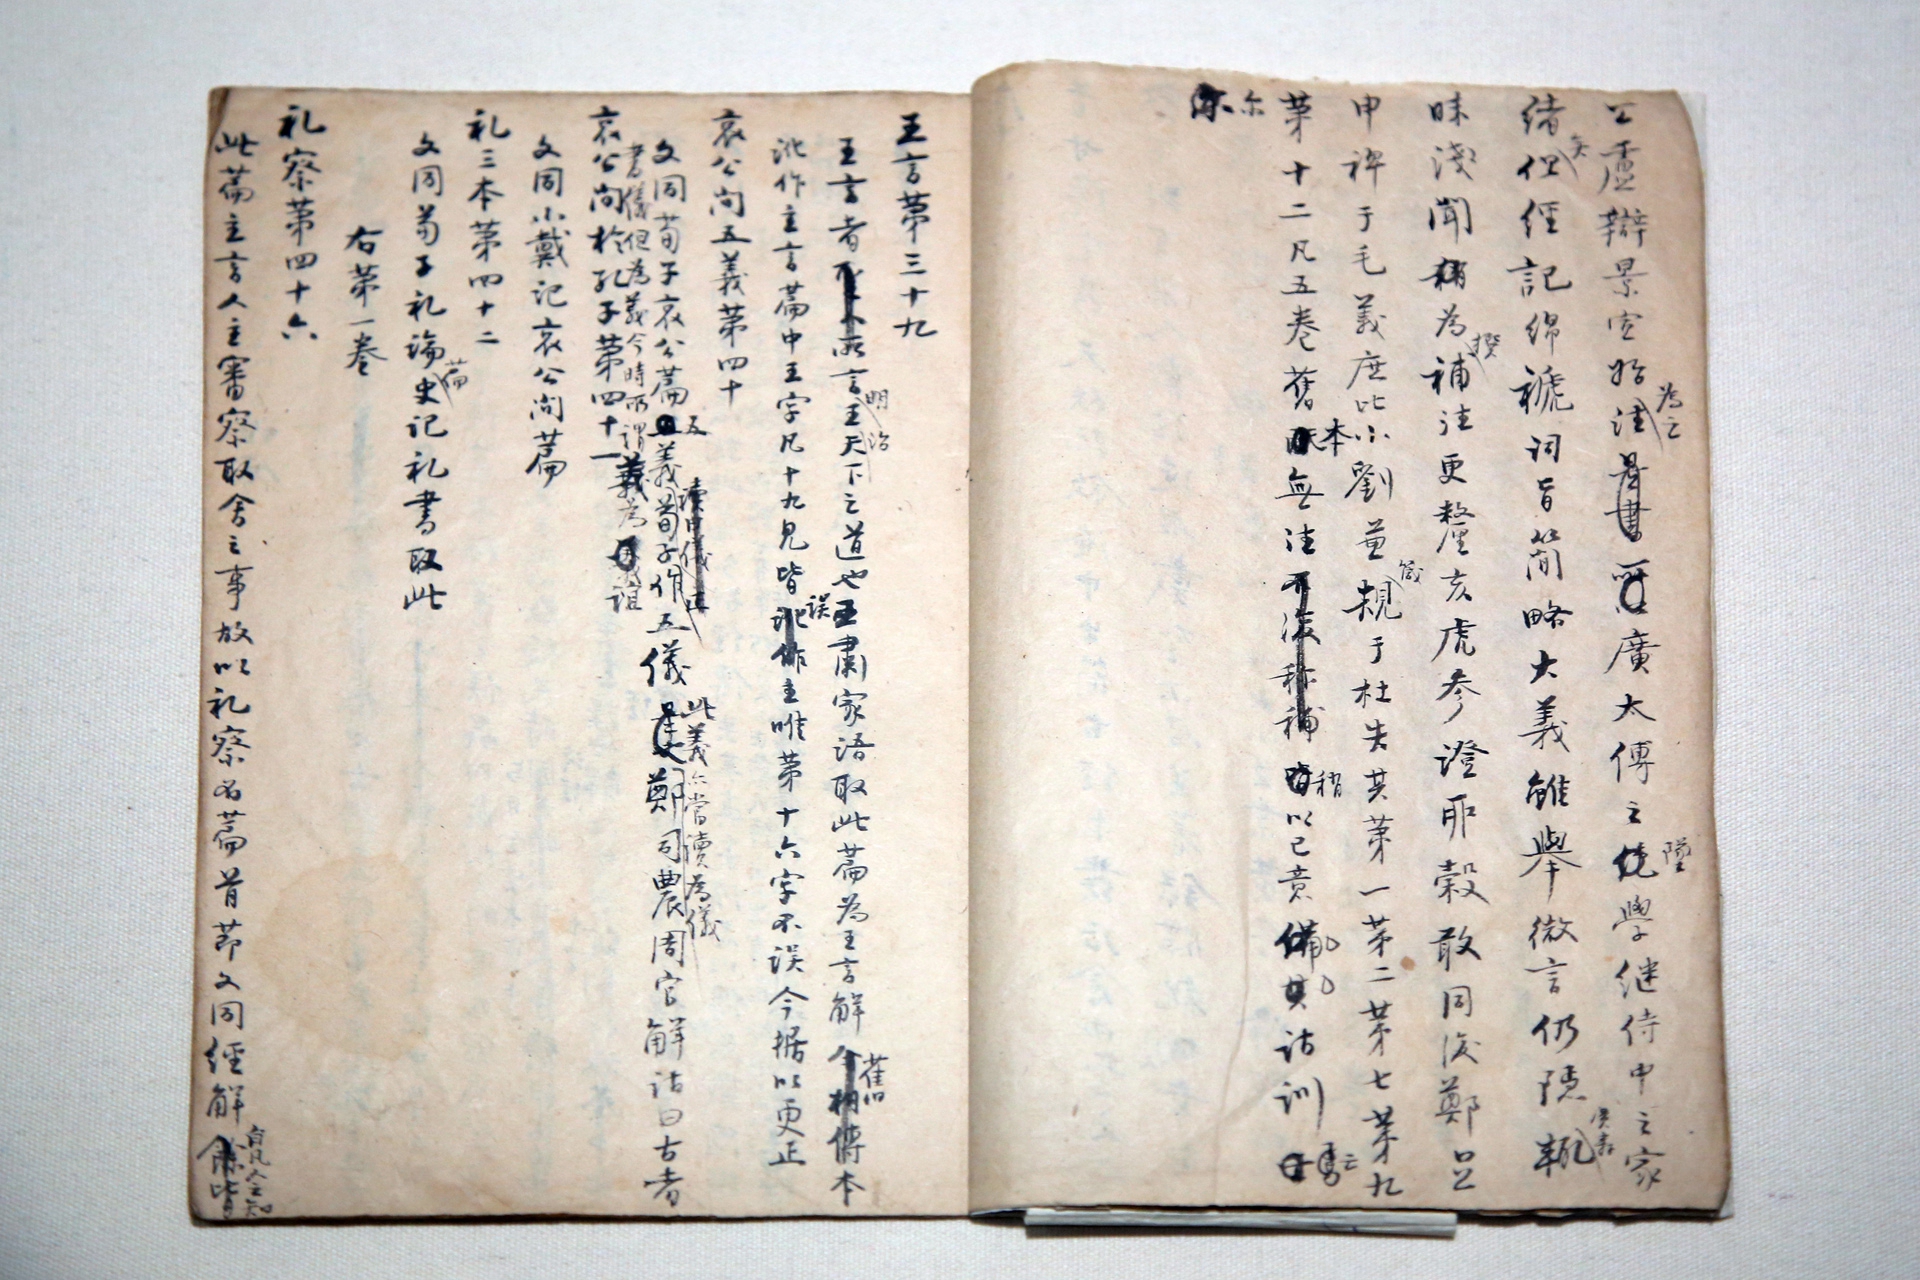 公盧辯景宣始注是書廣太傅之繞學继侍中之家
為之
墜
緒但經記綿褫詞旨簡略大義雖舉微言仍隱輒
矣
昧淺聞稍為補注更釐亥虎參證耶穀敢同後鄭𠯁
撰
申禆于毛義庶比小劉萓規于杜失其第一第二第七第九
箴
第十二凡五卷舊本無注不復称補以已意備其詁訓云
稍
尔
王言第三十九
王言者所言王天下之道也王肅家語取此篇為王言解今相傳本
明治
舊
訛作主言篇中王字凡十九見皆訛作主唯第十六字不误今据以更正
误
哀公问五義第四十
文同荀子哀公篇五義荀子作五儀是也鄭司農周官解詁曰古者
讀曰儀
此義亦當讀為儀
書儀但為義今時所謂義為誼
哀公问於孔子第四十一
文同小戴记哀公问篇
礼三本第四十二
文同荀子礼論史记礼書取此
篇
右第一卷
礼察第四十六
此篇主言人主審察取舍之事故以礼察名篇首节文同經解餘皆